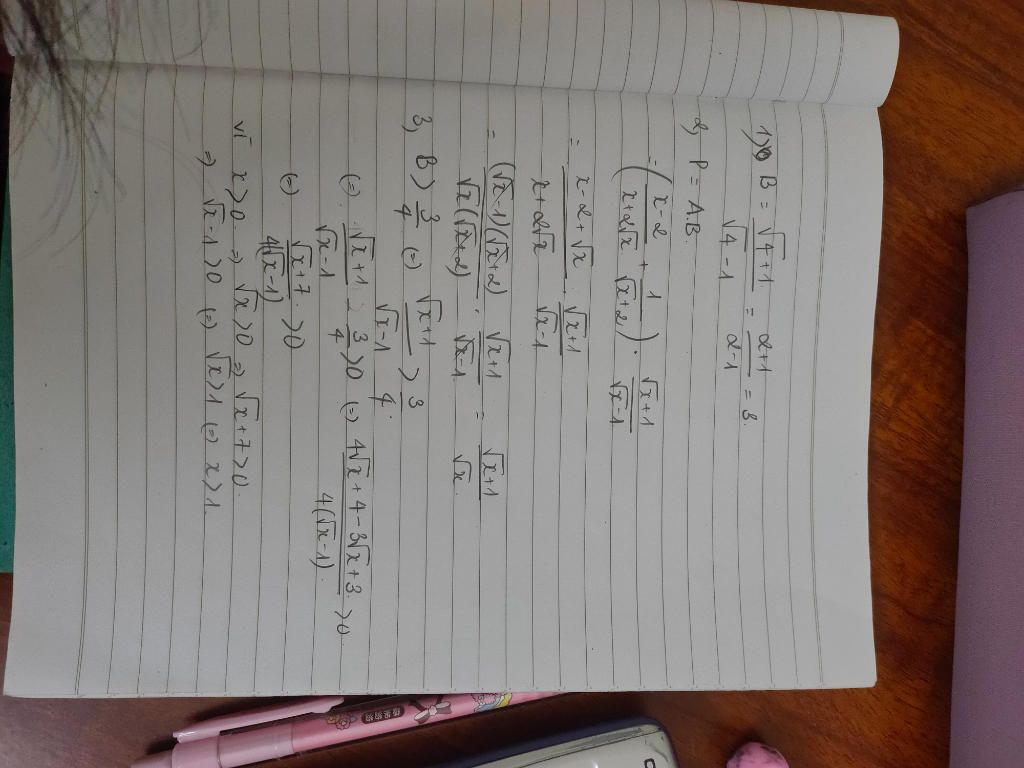 1) B = √4+1 / √4-1 = 2+1 / 2-1 = 3.
2, P = A.B.
= (x-2 / x+2√x + 1 / √x+2) . √x+1 / √x-1
= x-2+√x / x+2√x . √x+1 / √x-1
= (√x-1)(√x+2) / √x(√x+2) . √x+1 / √x-1 = √x+1 / √x.
3, B > 3/4 (=) √x+1 / √x-1 > 3/4.
(=) √x+1 / √x-1 - 3/4 > 0 (=) 4√x+4-3√x+3 / 4(√x-1) > 0.
(=) √x+7 / 4(√x-1) > 0
vì x > 0 ⇒ √x > 0 ⇒ √x+7 > 0.
⇒ √x-1 > 0 (=) √x > 1 (=) x > 1.